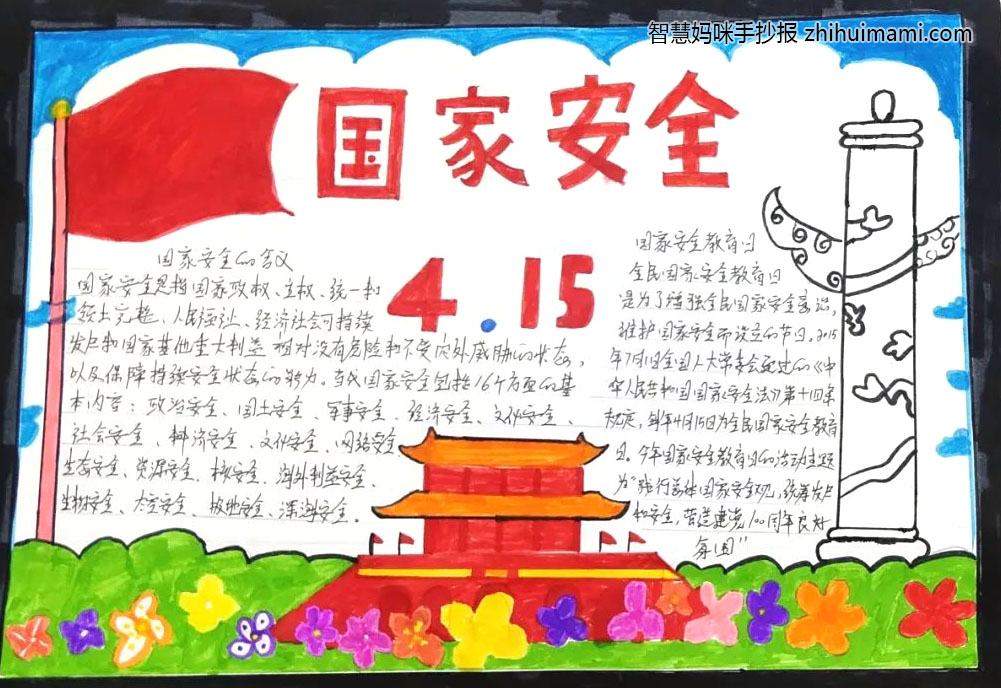 智慧妈咪手抄报 zhihuimami.com
国家安全
4.15
国家安全的含义
国家安全是指国家政权、主权、统一和
领土完整、人民福祉、经济社会可持续
发展和国家其他重大利益相对没有危险和不受内外威胁的状态,
以及保障持续安全状态的能力。当代国家安全包括16个方面的基
本内容：政治安全、国土安全、军事安全、经济安全、文化安全、
社会安全、科济安全、文化安全、网络安全、
生态安全、资源安全、核安全、海外利益安全、
生物安全、太空安全、极地安全、深海安全。
国家安全教育日
全民国家安全教育日
是为了增强全民国家安全意识,
维护国家安全而设立的节日。2015
年7月1日全国人大常委会通过的《中
华人民共和国国家安全法》第十四条
规定,每年4月15日为全民国家安全教育
日。今年国家安全教育日的活动主题
为“践行总体国家安全观,统筹发展
和安全,营造建党100周年良好
氛围”